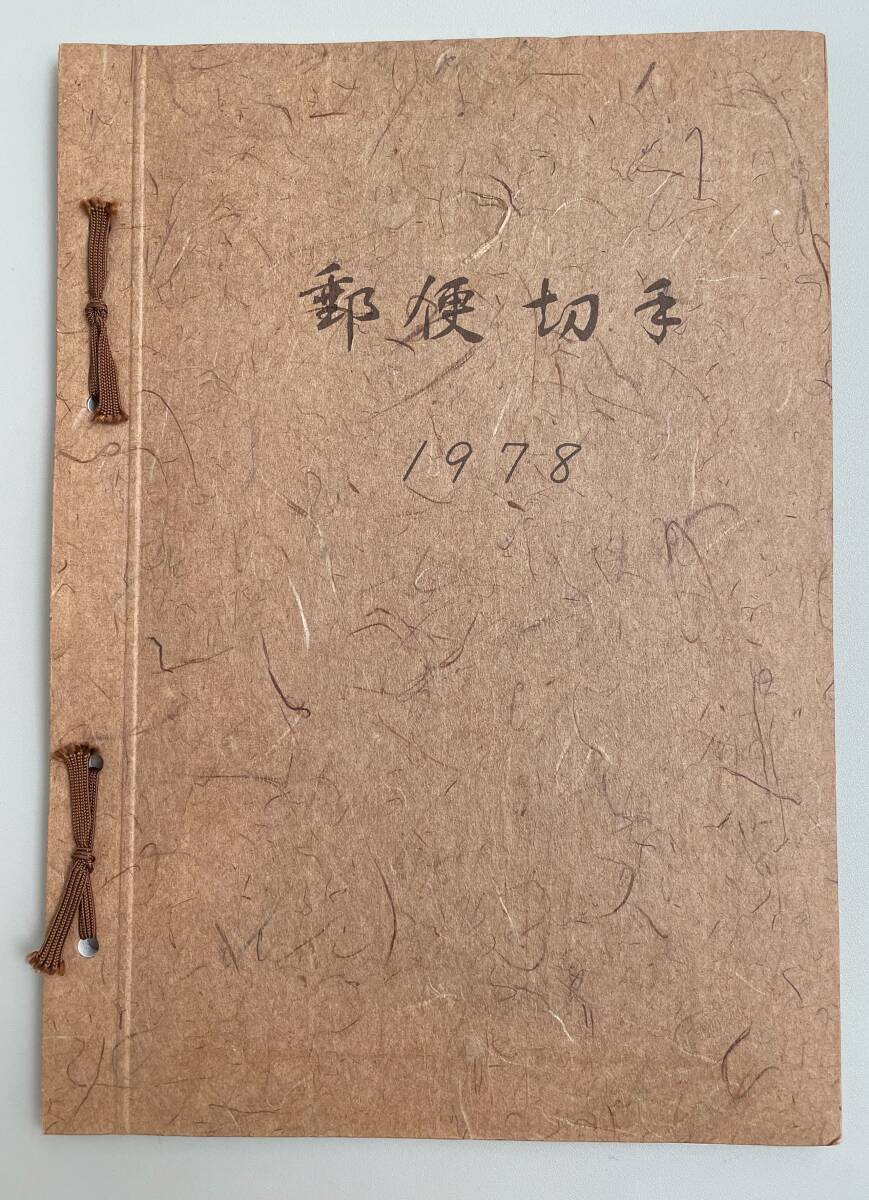 郵便切手
1978